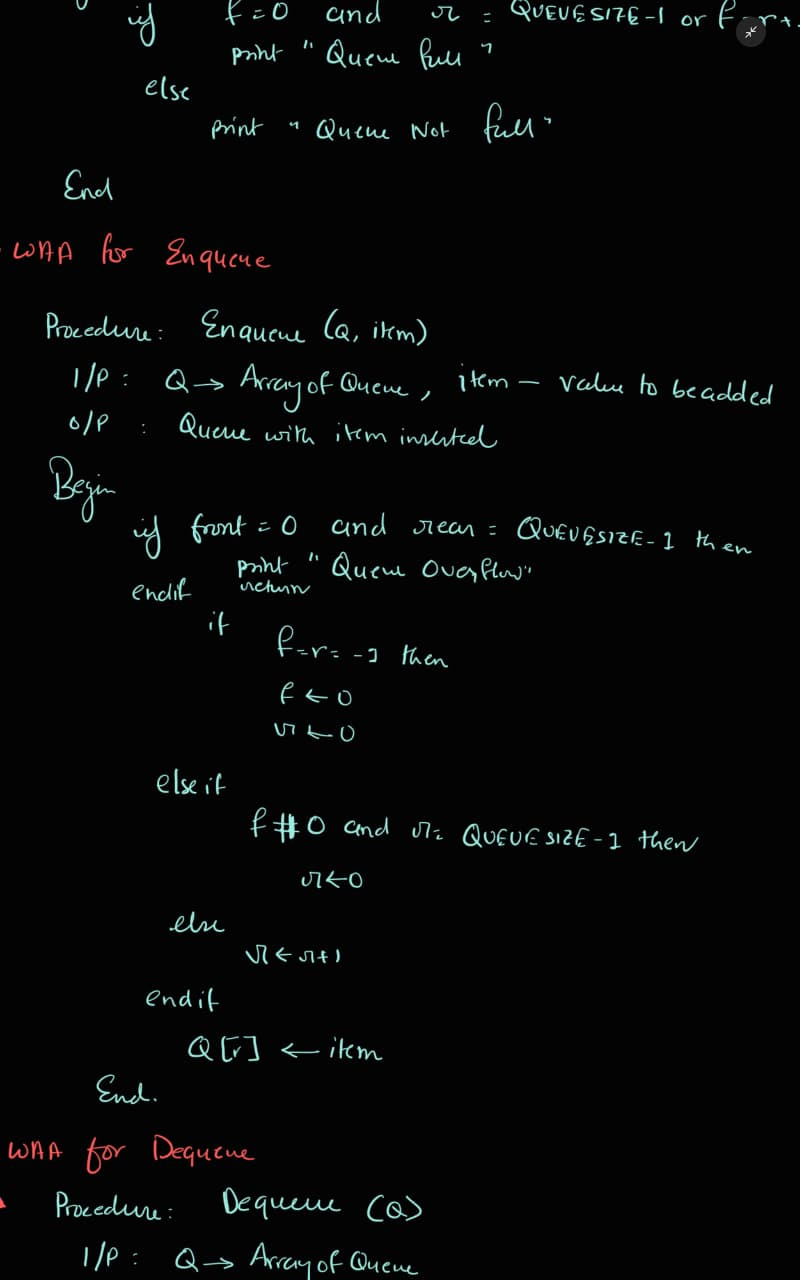 if f = 0 and r = QUEUESIZE-1 or f = r+
print " Queue full "
else
print " Queue Not full "
End
WAA for Enqueue
Procedure: Enqueue (Q, item)
I/P : Q → Array of Queue, item – value to be added
O/P : Queue with item inserted
Begin
if front = 0 and rear = QUEUESIZE-1 then
print " Queue Overflow"
return
endif
if f=r= -1 then
f ← 0
r ← 0
else if
f # 0 and r= QUEUESIZE-1 then
r ← 0
else
r ← r+1
endif
Q [r] ← item
End.
WAA for Dequeue
Procedure: Dequeue (Q)
I/P : Q → Array of Queue